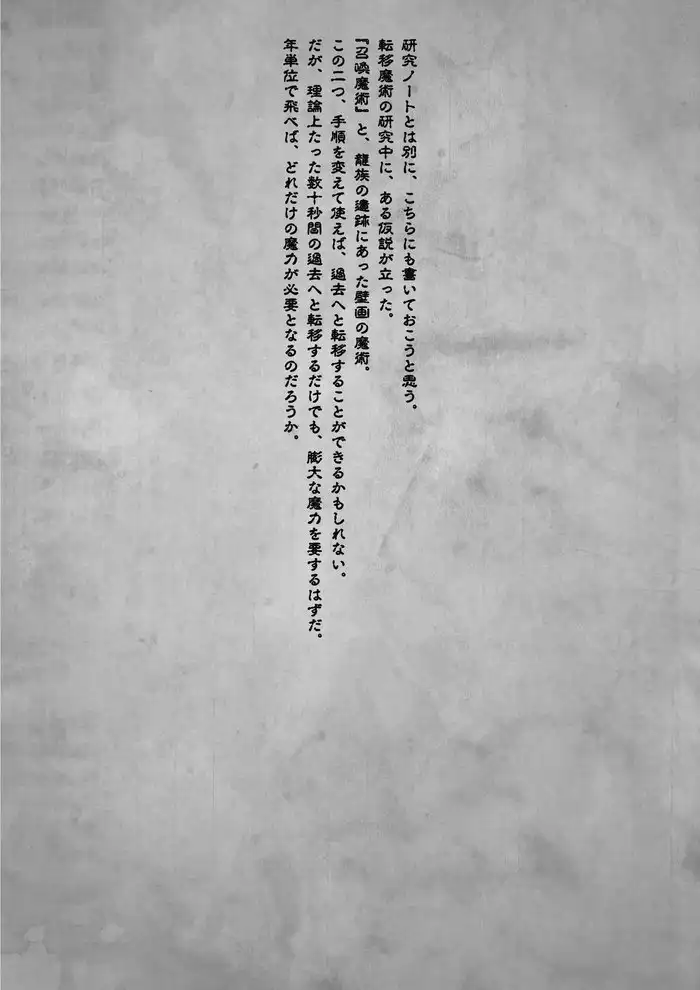 研究ノートとは別に、こちらにも書いておこうと思う。
転移魔術の研究中に、ある仮説が立った。
『召喚魔術』と、龍族の遺跡にあった壁画の魔術。
この二つ、手順を変えて使えば、過去へと転移することができるかもしれない。
だが、理論上たった数十秒間の過去へと転移するだけでも、膨大な魔力を要するはずだ。
年単位で飛べば、どれだけの魔力が必要となるのだろうか。